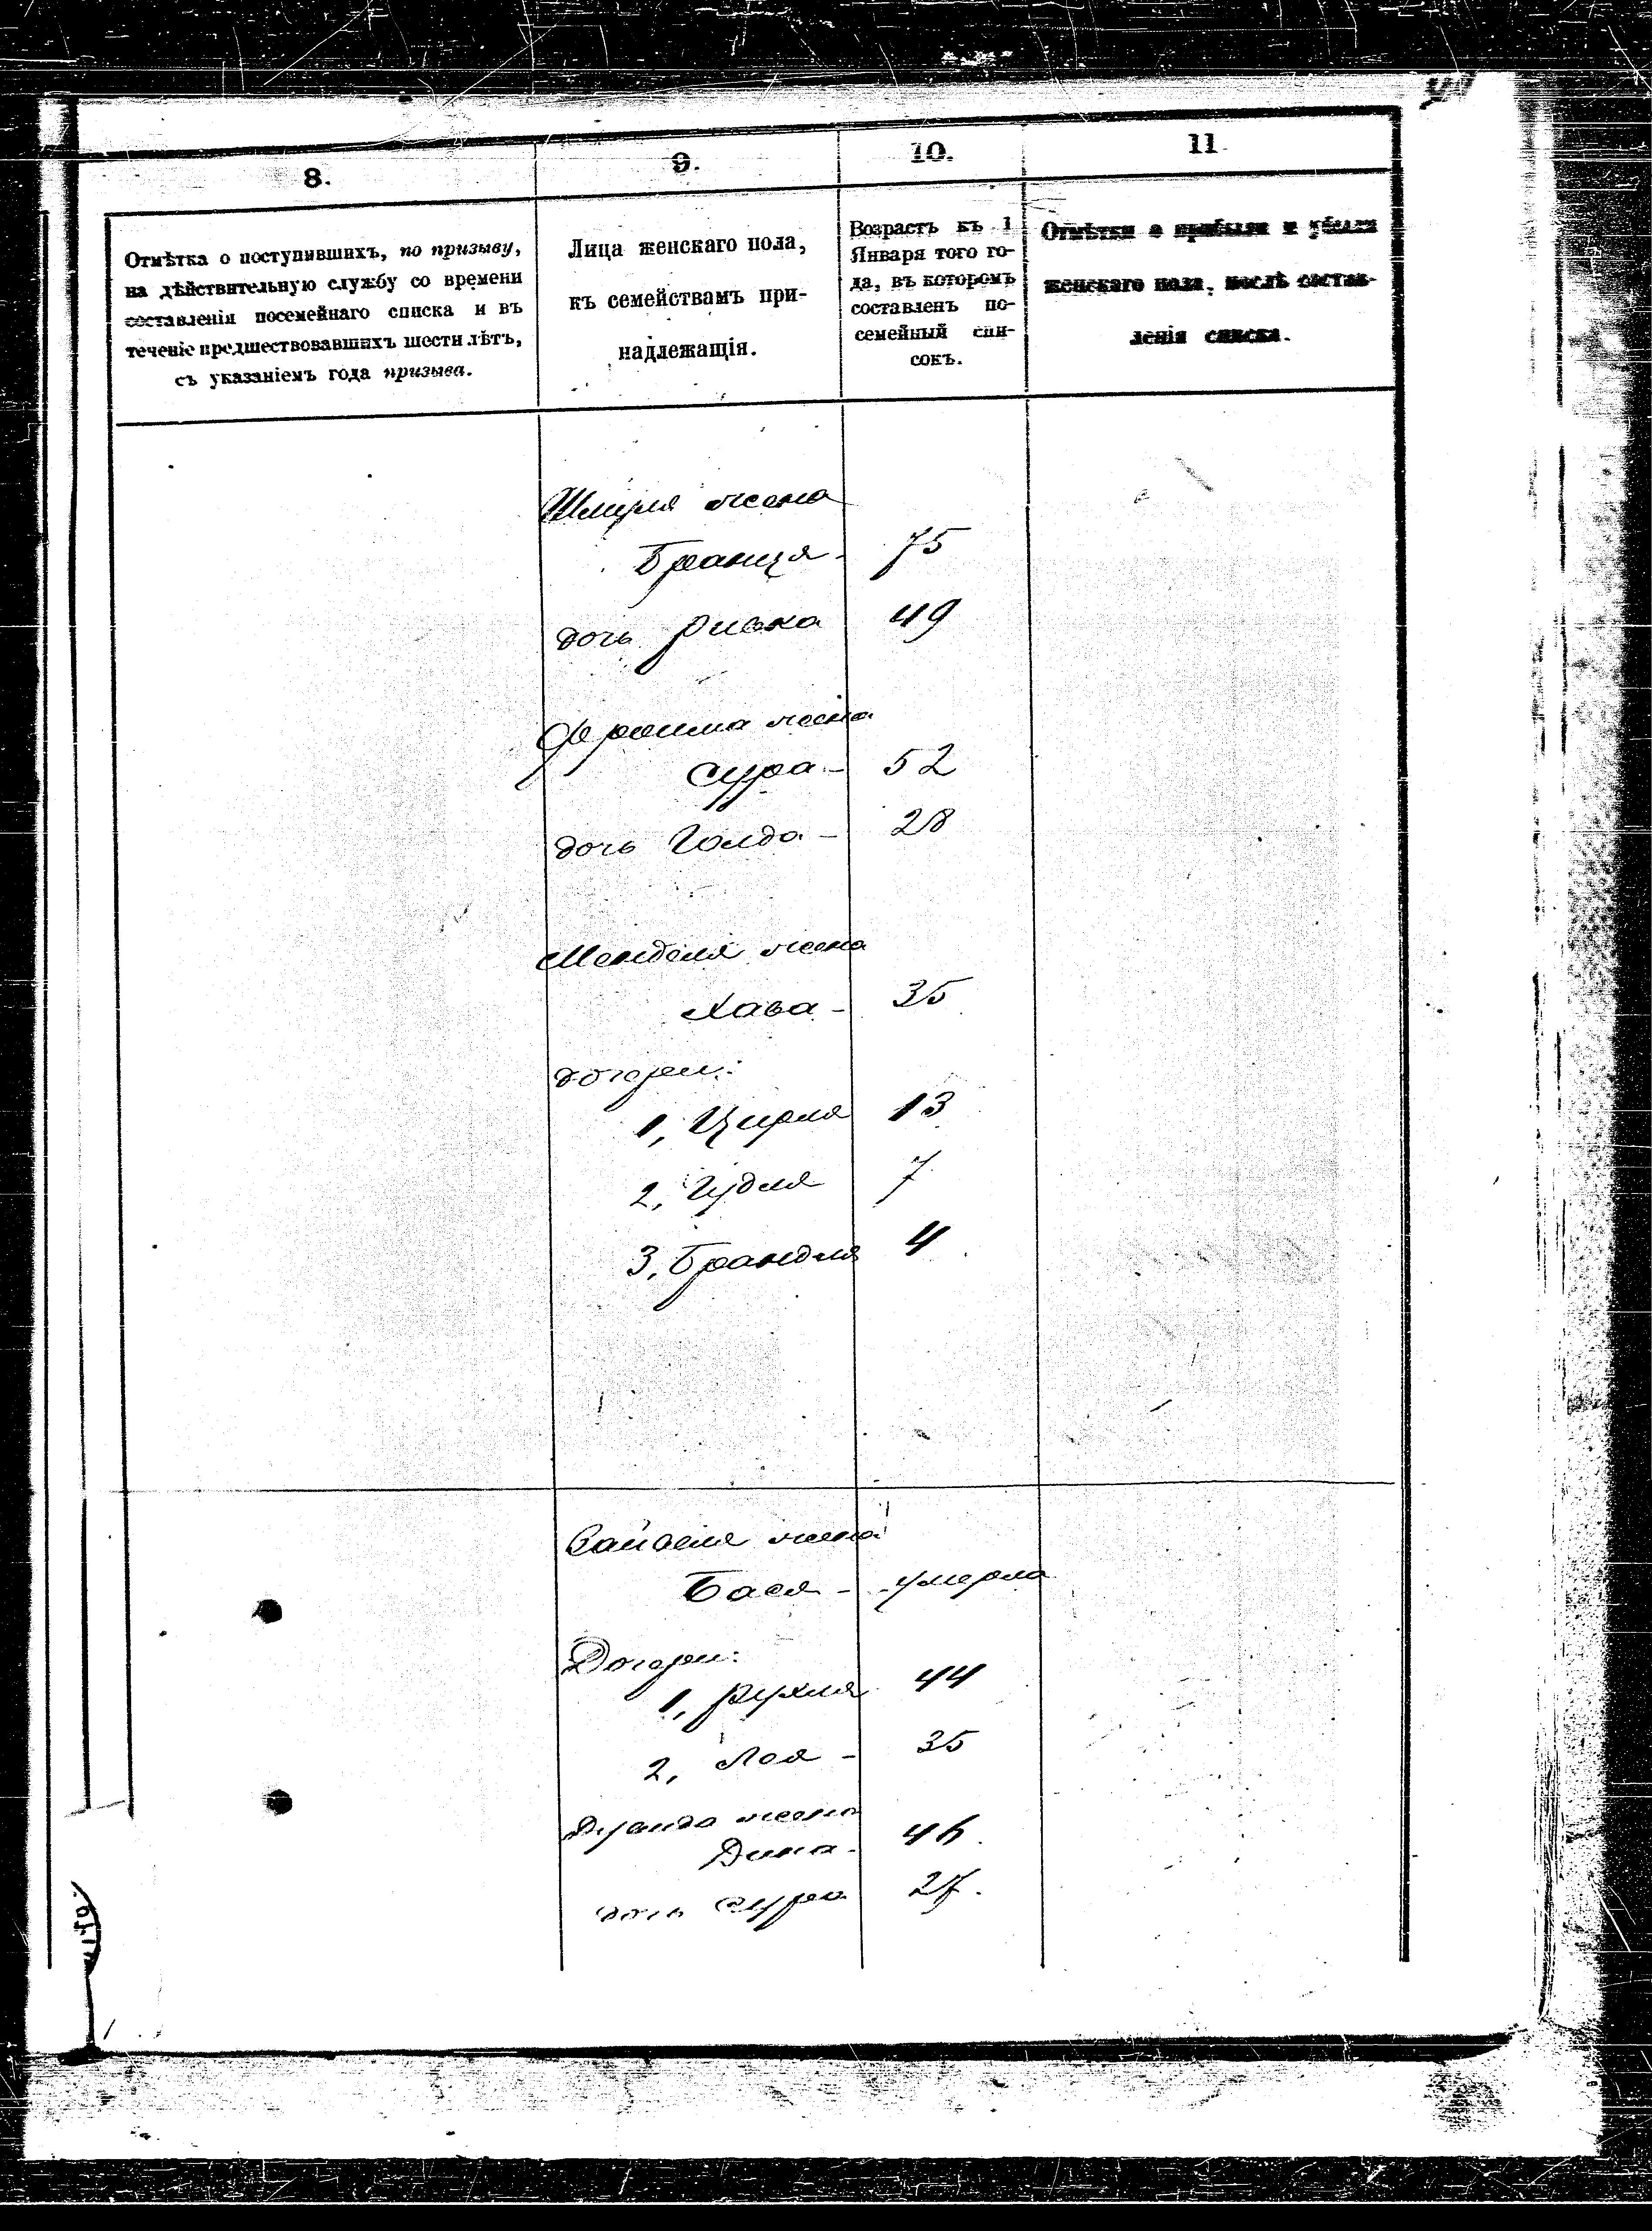 8.
9.
10.
11
Отмѣтка о поступившихъ, по призыву,
на дѣйствительную службу со времени
составленія посемейнаго списка и въ
теченіе предшествовавшихъ шести лѣтъ,
съ указаніемъ года призыва.
Лица женскаго пола,
къ семействамъ при-
надлежащія.
Возрастъ къ 1
Января того го-
да, въ которомъ
составленъ по-
семейный спи-
сокъ.
Отмѣтки о прибыли и убыли
женскаго пола, послѣ состав-
ленія списка.
Шмуля жена
Бранця - 75
дочь Ривка 49
Фроима жена
Сура - 52
дочь Голда - 28
Менделя жена
Хава - 35
дочери:
1, Цирля 13
2, Гудля 7
3, Брандля 4
жена
Бася - умерла
Дочери:
1, Рухля 44
2, Лея - 35
жена
Дина - 46.
дочь Сура 27.